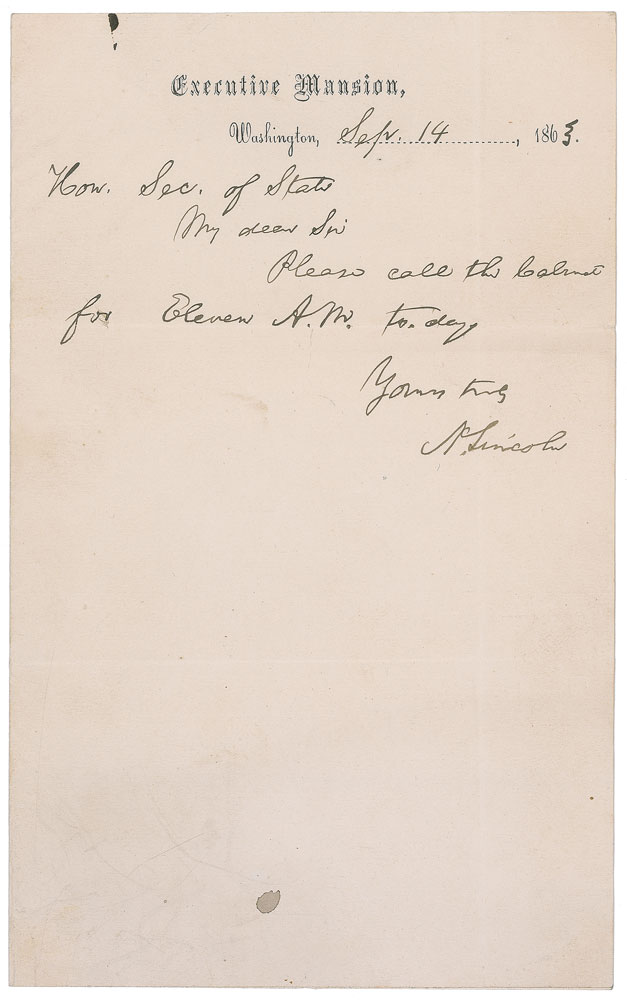 Executive Mansion,
Washington, Sep. 14, 1863.
Hon. Sec. of State
My dear Sir
Please call the Cabinet
for Eleven A.M. to-day
Yours truly
A. Lincoln